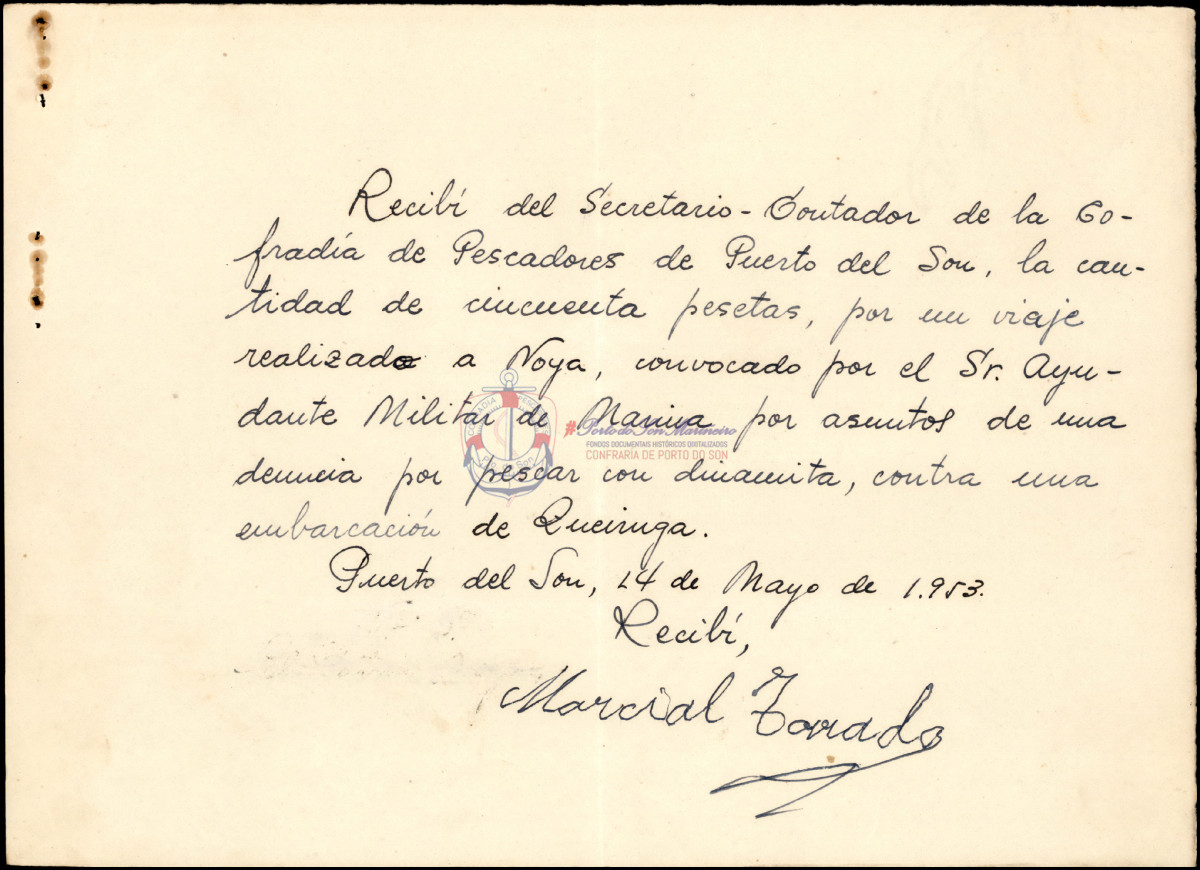 Recibí del Secretario-Contador de la Co-
fradía de Pescadores de Puerto del Son, la can-
tidad de cincuenta pesetas, por un viaje
realizado a Noya, convocado por el Sr. Ayu-
dante Militar de Marina por asuntos de una
#Porto do Son Marineiro
FONDOS DOCUMENTAIS HISTÓRICOS DIXITALIZADOS
CONFRARÍA DE PORTO DO SON
denuncia por pescar con dinamita, contra una
embarcación de Queiruga.
Puerto del Son, 14 de Mayo de 1.953.
Recibí,
Marcial Torrado